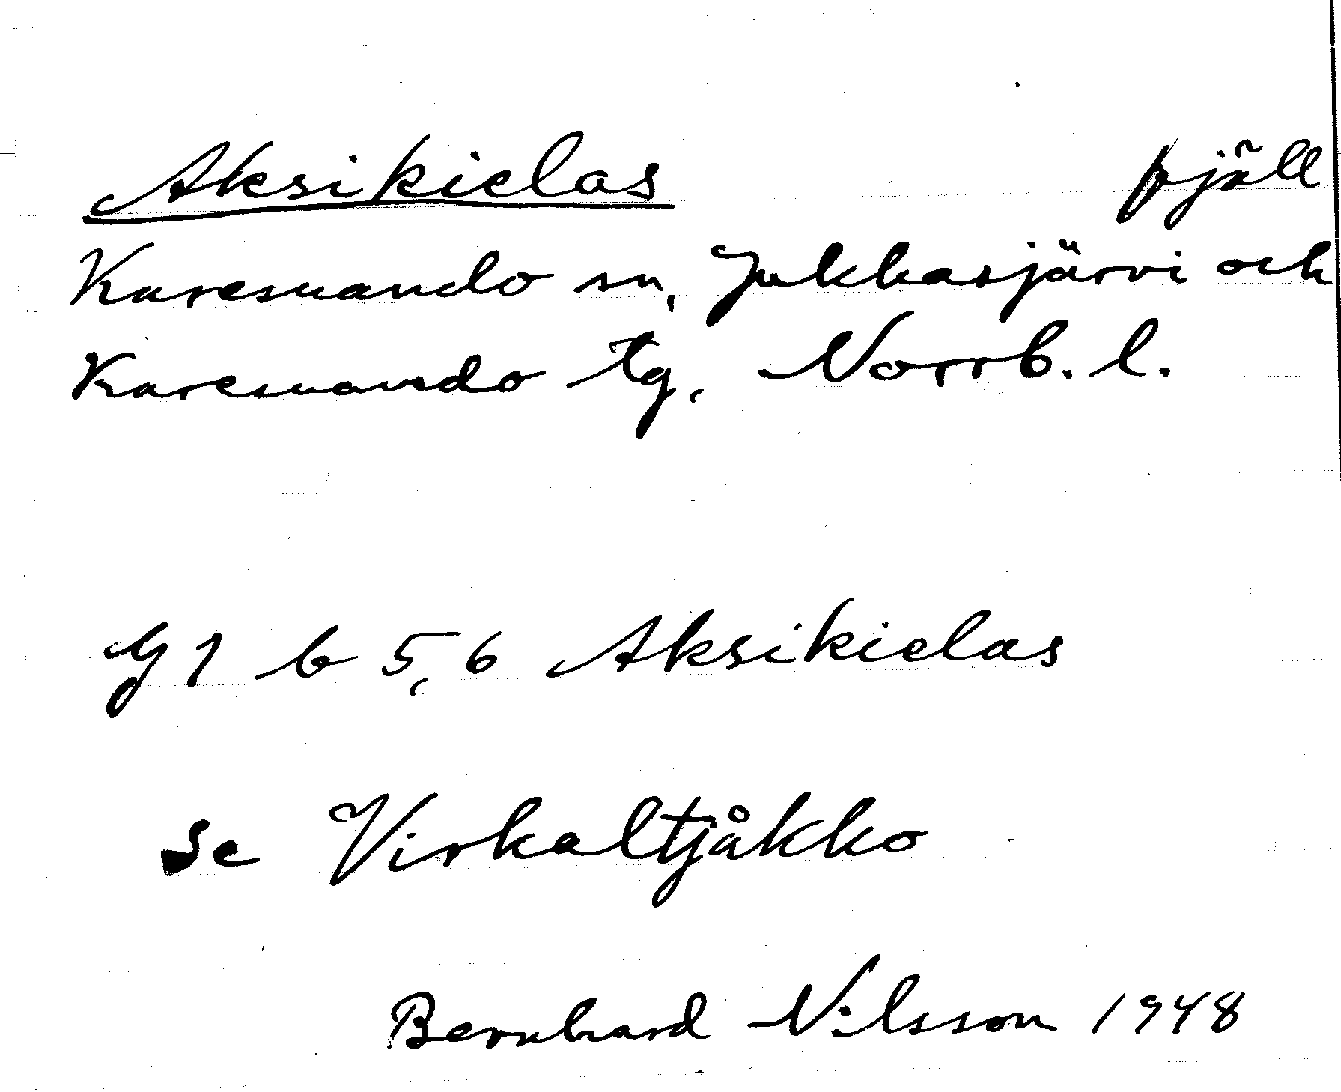 Aksikielas fjäll
Karesuando sn, Jukkasjärvi och
Karesuando tg, Norrb. l.
G1 b 5,6 Aksikielas
se Virkaltjåkko
Bernhard Nilsson 1948